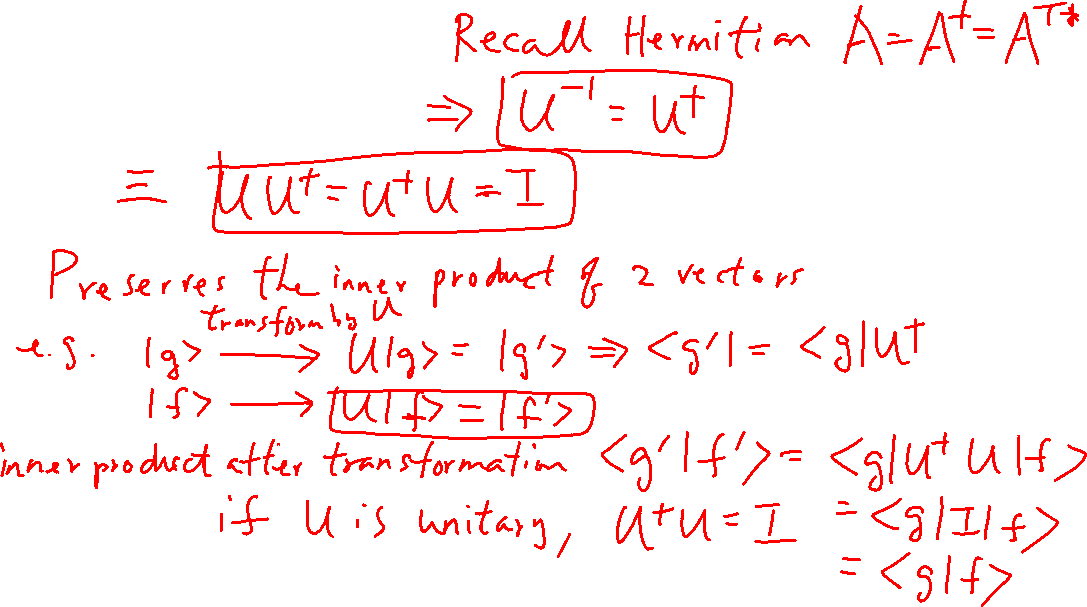 Recall Hermitian A = A† = A^T*
⇒ U⁻¹ = U†
≡ U U† = U† U = I
Preserves the inner product of 2 vectors
transform by U
e.g. |g> ⟶ U|g> = |g'> ⇒ <g'| = <g|U†
|f> ⟶ U|f> = |f'>
inner product after transformation <g'|f'> = <g|U† U|f>
if U is unitary, U†U = I = <g|I|f>
= <g|f>